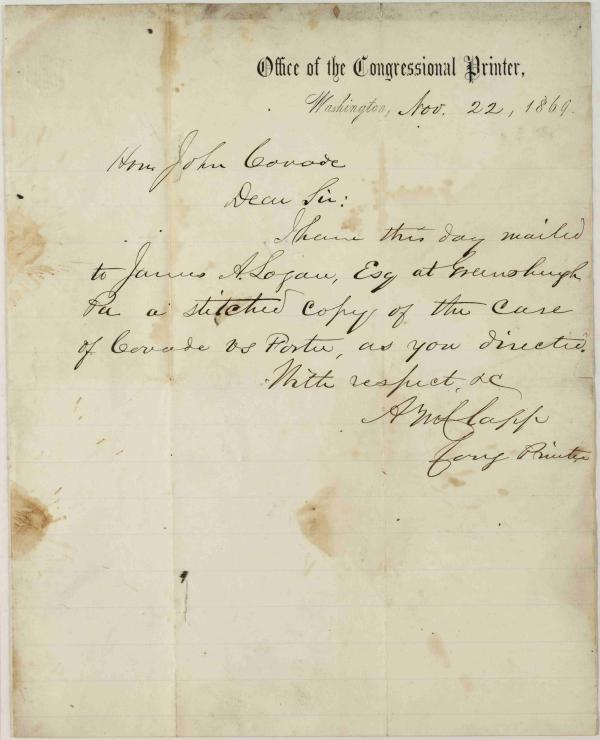 Office of the Congressional Printer,
Washington, Nov. 22, 1869.
Hon John Covode
Dear Sir:
I have this day mailed
to James A. Logan, Esq at Greensburgh
Pa a stitched copy of the case
of Covode vs Foster, as you directed.
With respect, &c
A M Clapp
Cong Printer